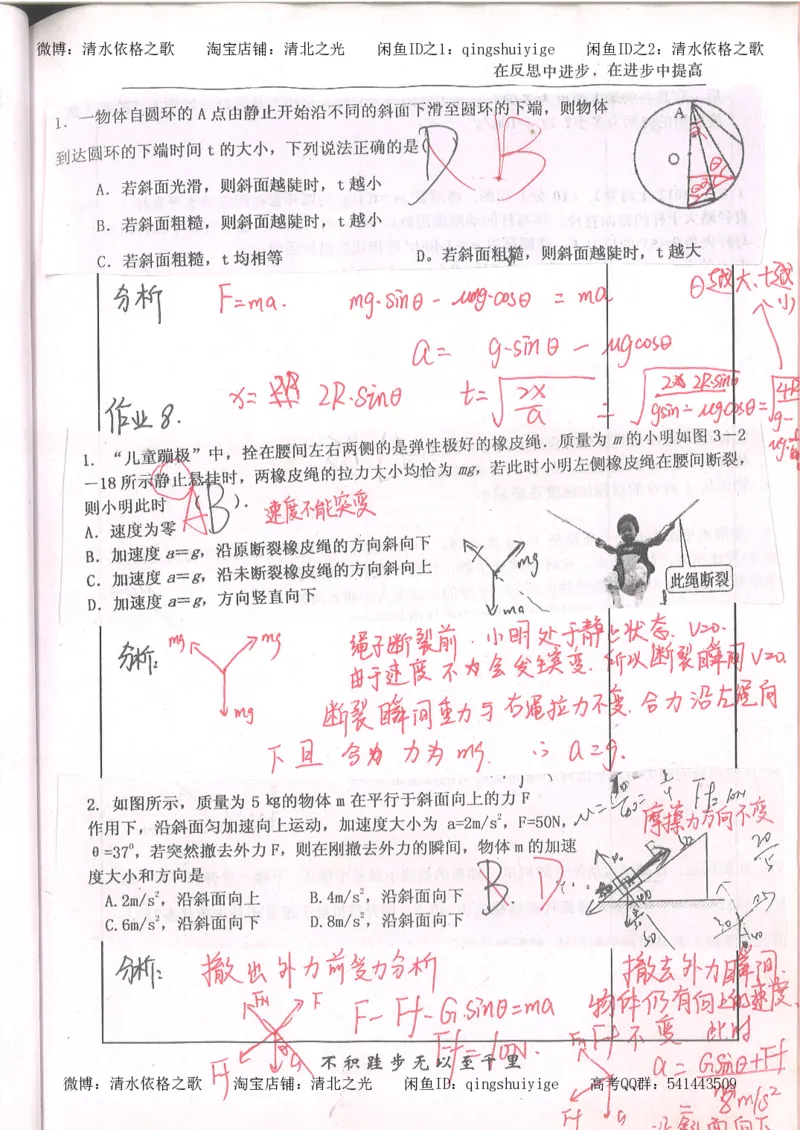 微博：清水依格之歌 淘宝店铺：清北之光 闲鱼ID之1：qingshuiyige 闲鱼ID之2：清水依格之歌
在反思中进步，在进步中提高
1. 一物体自圆环的 A 点由静止开始沿不同的斜面下滑至圆环的下端，则物体
到达圆环的下端时间 t 的大小，下列说法正确的是( D B
A
O
A. 若斜面光滑，则斜面越陡时，t 越小
B. 若斜面粗糙，则斜面越陡时，t 越小
C. 若斜面粗糙，t 均相等 D。若斜面粗糙，则斜面越陡时，t 越大
分析 F=ma. mg·sinθ - μmg·cosθ = ma
θ越大、t越小
a= g·sinθ - μgcosθ
x= 2R·sinθ t=√2x/a
作业8.
1. “儿童蹦极”中，拴在腰间左右两侧的是弹性极好的橡皮绳．质量为 m 的小明如图 3－2
－18 所示静止悬挂时，两橡皮绳的拉力大小均恰为 mg，若此时小明左侧橡皮绳在腰间断裂，
则小明此时( AB )． 速度不能突变
A．速度为零
B．加速度 a＝g，沿原断裂橡皮绳的方向斜向下
C．加速度 a＝g，沿未断裂橡皮绳的方向斜向上
D．加速度 a＝g，方向竖直向下
mg
ma
此绳断裂
分析：
mg mg
mg
绳子断裂前．小明处于静止状态．V=0.
由于速度不为会发生突变．所以断裂瞬间V=0.
断裂瞬间重力与右绳拉力不变．合力沿左绳向
下且合为力为mg. ∴ a=g.
2. 如图所示，质量为 5 kg的物体 m 在平行于斜面向上的力 F
作用下，沿斜面匀加速向上运动，加速度大小为 a=2m/s²，F=50N，
θ=37⁰，若突然撤去外力 F，则在刚撤去外力的瞬间，物体 m 的加速
度大小和方向是 B D
Ff=10N
摩擦力方向不变
A.2m/s²，沿斜面向上 B.4m/s²，沿斜面向下
C.6m/s²，沿斜面向下 D.8m/s²，沿斜面向下
分析： 撤出外力前受力分析
FN F
Ff G
F-Ff-G·sinθ=ma
Ff=10N.
撤去外力瞬间.
物体仍有向上的速度.
Ff不变 此时
a=Gsinθ+Ff
=8m/s²
沿斜面向下
不积跬步无以至千里
微博：清水依格之歌 淘宝店铺：清北之光 闲鱼ID之1：qingshuiyige 高考QQ群：541443509